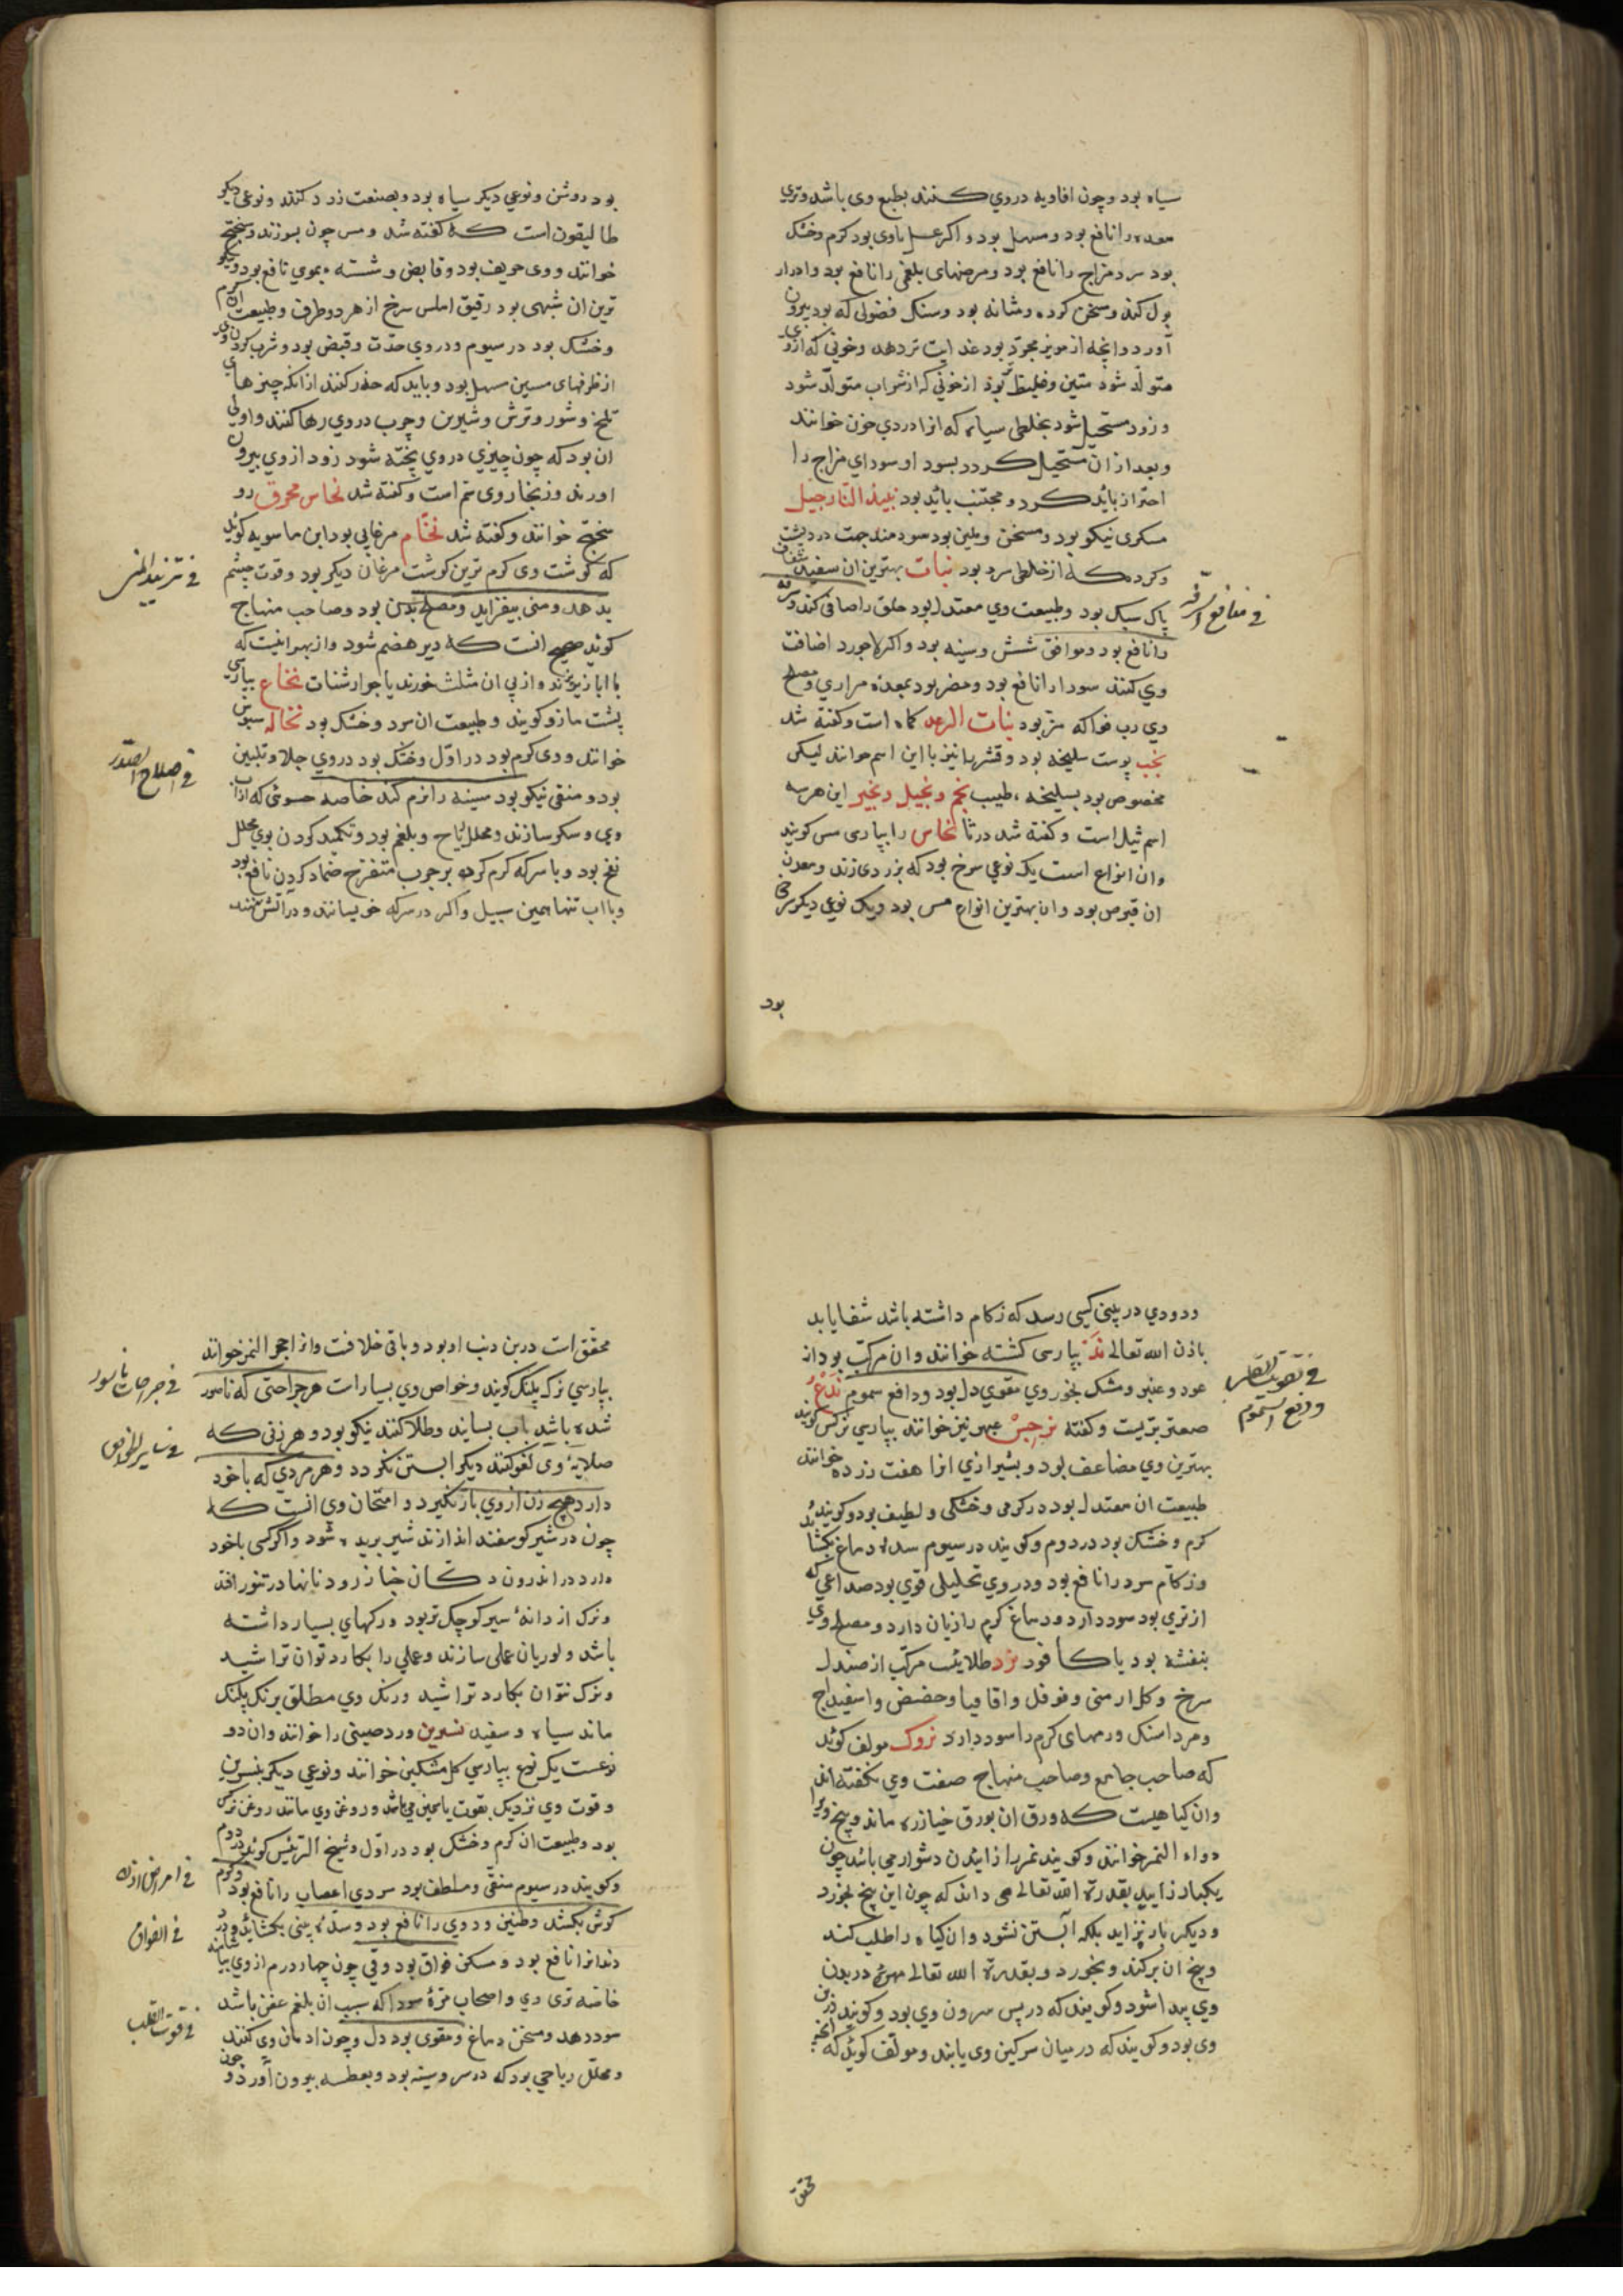 سیاه بود و چون افاویه در وی کنند بطبع وی باشد و تری
معده را نافع بود و مسهل بود و اکر عسل با وی بود کرم و خشک
بود سرد مزاج را نافع بود و مرضهای بلغمی را نافع بود و ادرار
بول کند و مسخن کرده و مثانه بود و سنک فضولی که بود بیرون
آورد و انچه از مویز مجرّد بود غذایت تر دهد و خونی که از وی
متولّد شود متین و غلیظ بود از خونی که از شراب متولّد شود
و زود مستحیل شود بخلطی سیاه که انرا دردی خون خوانند
و بعد از ان مستحیل کردد بسود او سودای مزاج را
احتراز باید کرد و مجتنب باید بود نبیذ النارجیل
مسکری نیکو بود و مسخن و ملین بود سودمند جهت درد پشت
و کرده که از خلطی سرد بود نبات بهترین ان سفید شفاف
پاک سبک بود و طبیعت وی معتدل بود حلق را صافی کند و سرفه
را نافع بود و موافق شش و سینه بود و اکر لاجورد اضافت
وی کنند سودا را نافع بود و مضر بود بمعده مراری و مصلح
وی رب فواکه مز بود نبات الرعد کماه است و کفته شد
نجب پوست سلیخه بود و قشرها نیز با این اسم خوانند لیکن
مخصوص بود بسلیخه طیب نجم و نجیل و نجیر این هر سه
اسم ثیل است و کفته شد در ثا نحاس را بپارسی مس کویند
و ان انواع است یک نوعی سرخ بود که بزردی زند و معدن
ان قبرص بود و ان بهترین انواع مس بود و یک نوعی دیکر سرخ
بود
فی منافع السرفه
بود روشن و نوعی دیکر سیاه بود و بصنعت زرد کنند و نوعی دیکر
طالیقون است که کفته شد و مس چون بسوزند روسختج
خوانند و وی حریف بود و قابض و شسته بموی نافع بود و نیکو
ترین ان شبهی بود رقیق املس سرخ از هر دو طرف و طبیعت ان کرم
و خشک بود در سیوم و در وی حدّت و قبض بود و شرب کردن وی
از ظرفهای مسین مسهل بود و باید که حذر کنند از انکه چیزهای
تلخ و شور و ترش و شیرین و چرب در وی رها کنند و اولی
ان بود که چون چیزی در وی پخته شود زود از وی بیرون
اورند و زنجار وی سم است و کفته شد نحاس محرق رو
سختج خوانند و کفته شد نحّام مرغابی بود ابن ماسویه کوید
که کوشت وی کرم ترین کوشت مرغان دیکر بود و قوت چشم
بدهد و منی بیفزاید و مصلح بدن بود و صاحب منهاج
کوید صحیح انست که دیر هضم شود و از بهر انیست که
با ابازیر پزند و از پی ان مثلث خورند یا جوارشنات نخاع بپارسی
پشت مازو کویند و طبیعت ان سرد و خشک بود نخاله سبوس
خوانند و وی کرم بود در اوّل و خشک بود در وی جلا و تلیین
بود و منقی نیکو بود سینه را نرم کند خاصه حسوئی که از اب
وی و سکر سازند و محلل ریاح و بلغم بود و تکمید کردن بوی محلل
نفخ بود و با سرکه کرم کرده بر جرب متقرح ضماد کردن نافع بود
و با اب تنها همین سبیل و اکر در سرکه خویسانند و در آتش نهند
فی تزیید المنی
فی اصلاح الصدر
و دودی در بینی کسی رسد که زکام داشته باشد شفا یابد
باذن الله تعالی ند بپارسی کشته خوانند و ان مرکّب بود از
عود و عنبر و مشک بخور وی مقوی دل بود و دافع سموم ندغ
صعتر بریست و کفته نرجس عبهر نیز خوانند بپارسی نرکس کویند
بهترین وی مضاعف بود و بشیرازی انرا هفت زرده خوانند
طبیعت ان معتدل بود در کرمی و خشکی و لطیف بود و کویند
کرم و خشک بود در دوم و کویند در سیوم سده دماغ بکشا
و زکام سرد را نافع بود و در وی تحلیلی قوی بود صداعی که
از تری بود سود دارد و دماغ کرم را زیان دارد و مصلح وی
بنفشه بود یا کافور نرد طلایست مرکّب از صندل
سرخ و کل ارمنی و فوفل و اقاقیا و حضض و اسفیداج
و مرداسنک ورمهای کرم را سود دارد نزوک مولف کوید
که صاحب جامع و صاحب منهاج صفت وی نکفته اند
و ان کیاهیست که ورق ان بورق خیار زه ماند و بیخ ویرا
دواء النمر خوانند و کویند نمر را زاییدن دشوار می باشد چون
یکبار زایید بقدرة الله تعالی می داند که چون این بیخ بخورد
و دیکر بار نزاید بلکه آبستن نشود و ان کیاه را طلب کند
و بیخ ان برکند و بخورد و بقدرة الله تعالی مهره در بدن
وی پیدا شود و کویند که در پس سرون وی بود و کویند در بن
وی بود و کویند که در میان سرکین وی یابند و مولّف کوید که
محقق
فی تقویت القلب
و دفع السموم
محقّق است در بن دنب او بود و باقی خلافت و انرا حجر النمر خوانند
بپارسی نزک پلنک کویند و خواص وی بسیارات هر جراحتی که ناسور
شده باشد باب بسایند و طلا کنند نیکو بود و هر زنی که
صلایهٔ وی لعق کنند دیکر ابستن نکردد و هر مردی که با خود
دارد هیچ زن از وی بار نکیرد و امتحان وی انست که
چون در شیر کوسفند اندازند شیر بریده شود و اکر کسی با خود
دارد در اندرون دکان خباز رود نانها در تنور افتد
و نزک از دانهٔ سیر کوچک تر بود و رکهای بسیار داشته
باشد و لوریان عملی سازند و عملی را بکارد توان تراشید
و نزک نتوان بکارد تراشید و رنک وی مطلق برنک پلنک
ماند سیاه و سفید نسرین ورد صینی را خوانند و ان دو
نوعست یک نوع بپارسی کل مشکین خوانند و نوعی دیکر بنسرین
و قوت وی نزدیک بقوت یاسمین می باشد و روغن وی مانند روغن نرکس
بود و طبیعت ان کرم و خشک بود در اوّل و شیخ الرئیس کوید در دوم
و کویند در سیوم منقّی و ملطف بود سردی اعصاب را نافع بود و کرم
کوش بکشد و طنین و دوی را نافع بود و سدّهٔ بینی بکشاید و درد
دندانرا نافع بود و مسکن فواق بود و قی چون چهار درم از وی بیاشامند
خاصه تری وی و اصحاب مرّهٔ سودا که سبب ان بلغم عفن باشد
سود دهد و مسخن دماغ و مقوی بود دل و چون ادمان وی کنند
و محلّل ریاحی بود که در سر و سینه بود و بعطسه بیرون آورد و چون
فی جراحات ناسور
فی سایر الخواص
فی امراض الاذن
فی الفواق
فی قوت القلب